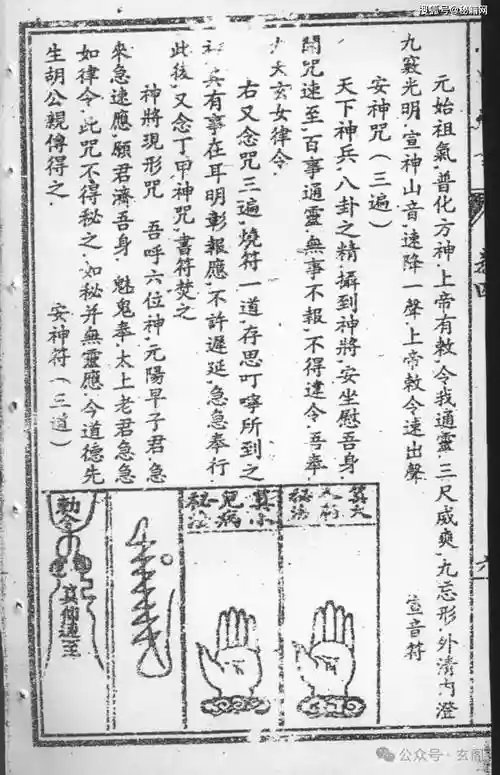 搜狐号@秘籍网
元始祖氣,普化万神,上帝有敕,令我通靈,三尺威爽,九忘形,外清内澄
九竅光明,宣神山音,速降一聲,上帝敕令速出聲
宣音符
安神咒(三遍)
天下神兵,八卦之精,攝到神將,安坐慰吾身,
聞咒速至,百事通靈,無事不報,不得違令,吾奉
九天玄女律令
右又念咒三遍,燒符一道,存思叮嚀所到之
神,兵有事在耳明彰報應,不許遲延,急急奉行
此後,又念丁甲神咒,書符焚之
神將現形咒 吾呼六位神,元陽早子君,急
來急速應,願君濟吾身 魁鬼奉太上老君急急
如律令,此咒不得秘之,如秘并無靈應,今道德先
生胡公親傳得之
安神符(三道)
算大
人病
秘法
算小
兒病
秘法
勅令
真仰速至
六
公众号·玄阁